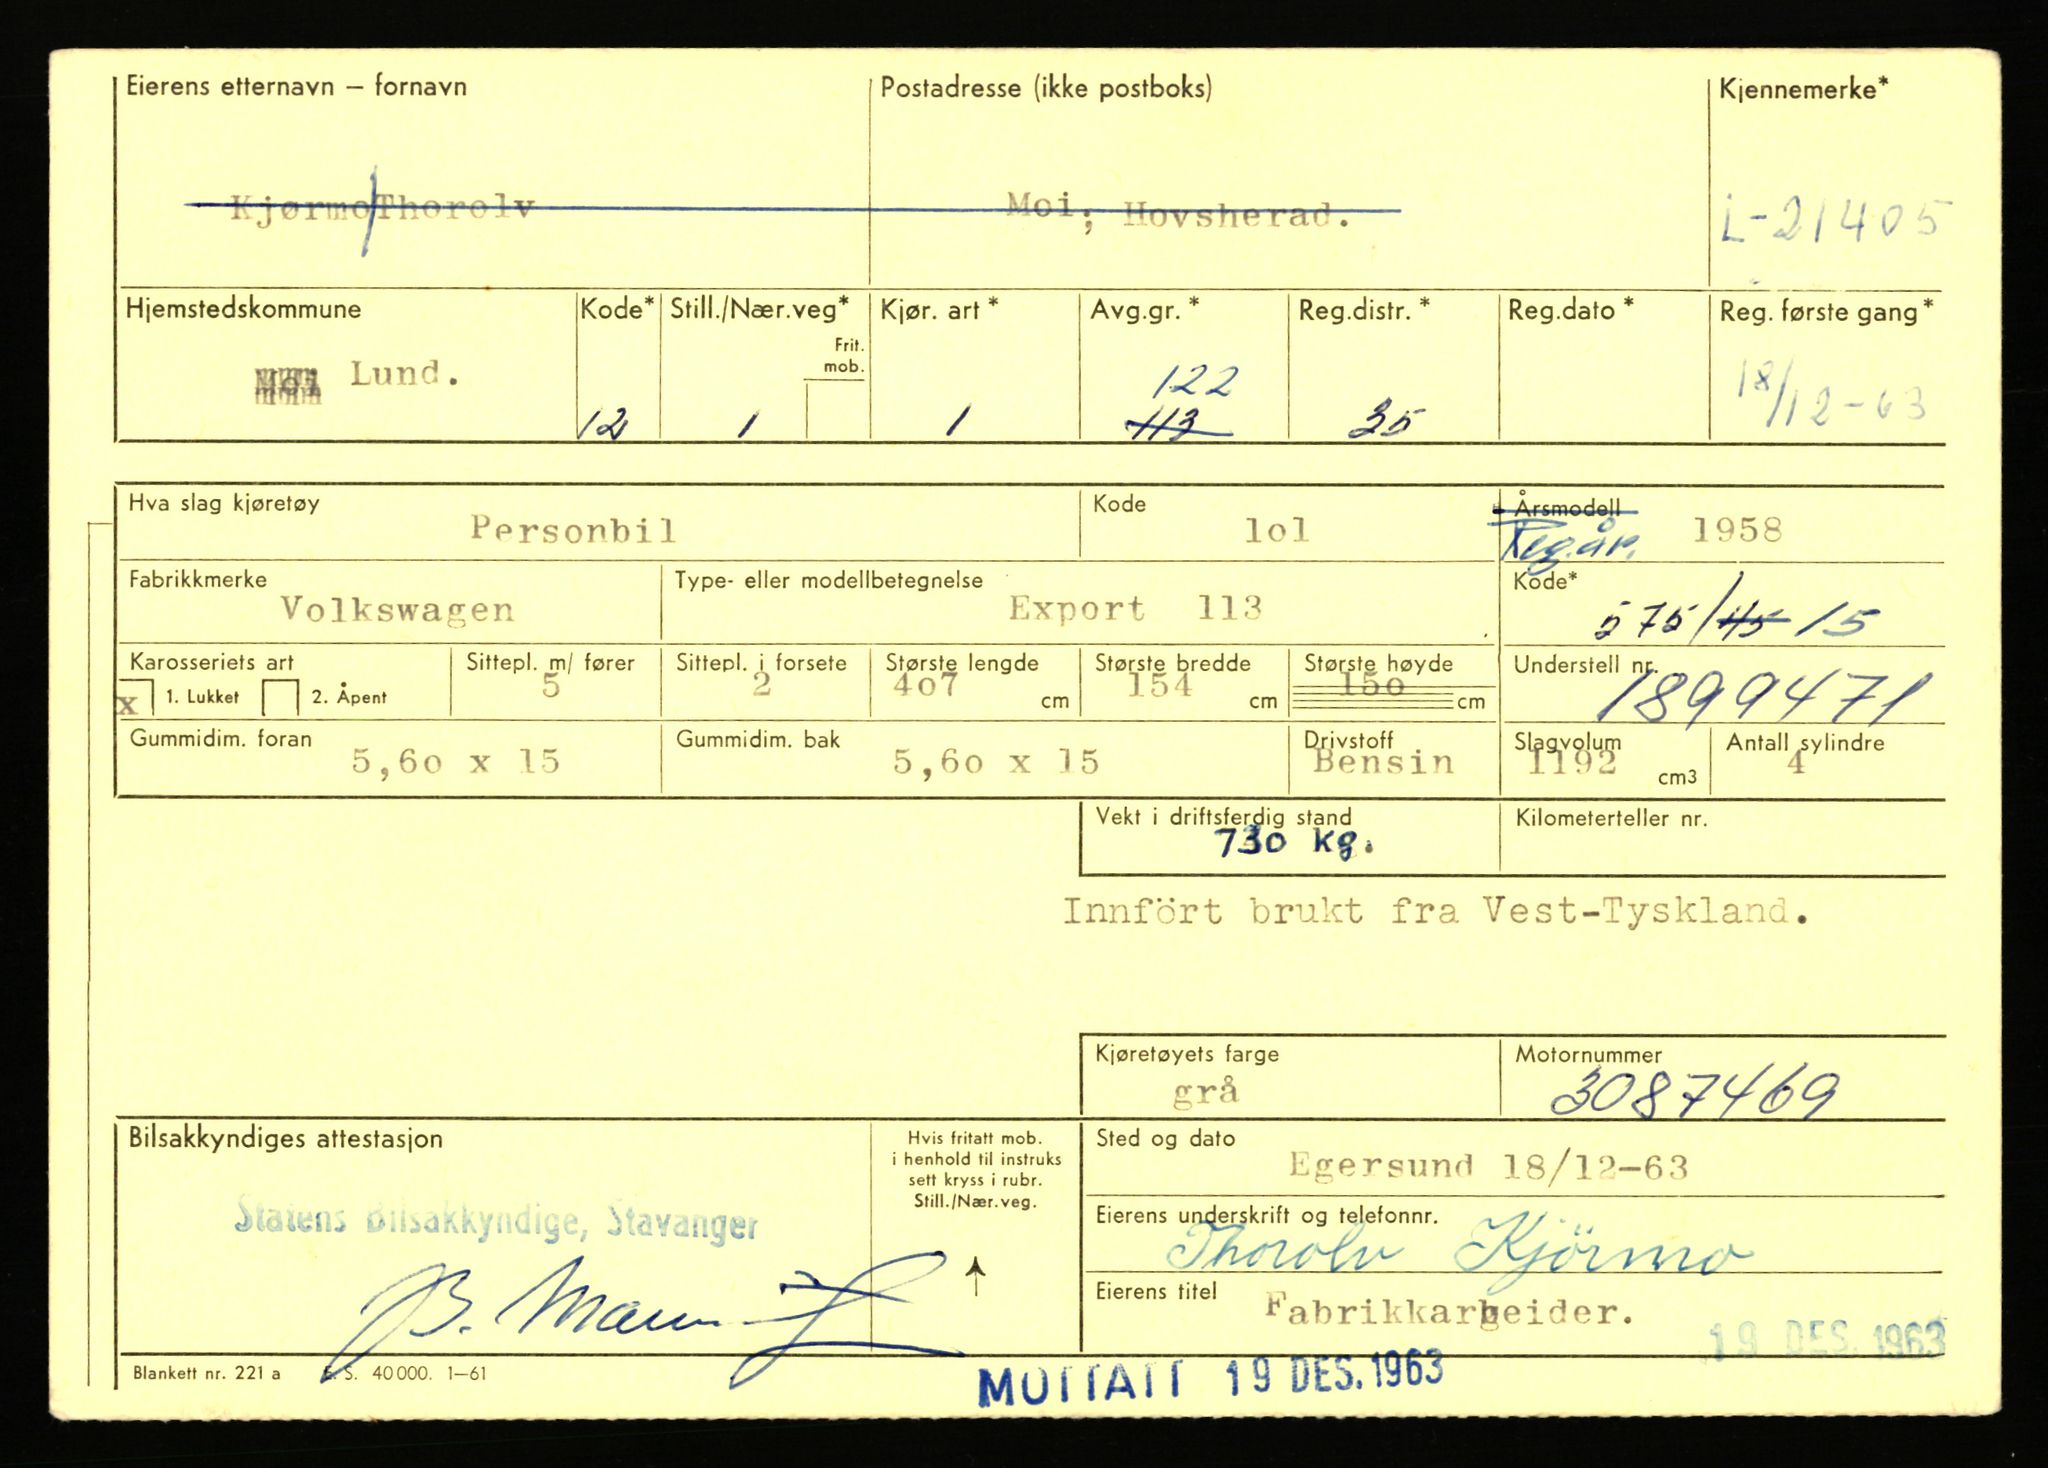 Eierens etternavn – fornavn Postadresse (ikke postboks) Kjennemerke*
Kjørmo/Thorolv Moi, Hovsherad. L-21405
Hjemstedskommune Kode* Still./Nær.veg* Kjør. art* Avg.gr.* Reg.distr.* Reg.dato* Reg. første gang*
Frit.
mob.
Moi Lund. 122 18/12-63
12 1 1 113 35
Hva slag kjøretøy Kode Årsmodell
Personbil lol Reg.år. 1958
Fabrikkmerke Type- eller modellbetegnelse Kode*
Volkswagen Export 113 575/45 15
Karosseriets art Sittepl. m/ fører Sittepl. i forsete Største lengde Største bredde Største høyde Understell nr.
x 1. Lukket 2. Åpent 5 2 4o7 cm 154 cm 15o cm 1899471
Gummidim. foran Gummidim. bak Drivstoff Slagvolum Antall sylindre
5,6o x 15 5,6o x 15 Bensin 1192 cm3 4
Vekt i driftsferdig stand Kilometerteller nr.
730 kg.
Innfört brukt fra Vest-Tyskland.
Kjøretøyets farge Motornummer
grå 3087469
Bilsakkyndiges attestasjon Hvis fritatt mob.
i henhold til instruks
sett kryss i rubr.
Still./Nær.veg.
Sted og dato
Egersund 18/12-63
Statens Bilsakkyndige, Stavanger
Eierens underskrift og telefonnr.
Thorolv Kjörmo
Eierens titel Fabrikkarbeider.
19 DES. 1963
Blankett nr. 221 a E. S. 40 000. 1–61
MOTTATT 19 DES. 1963